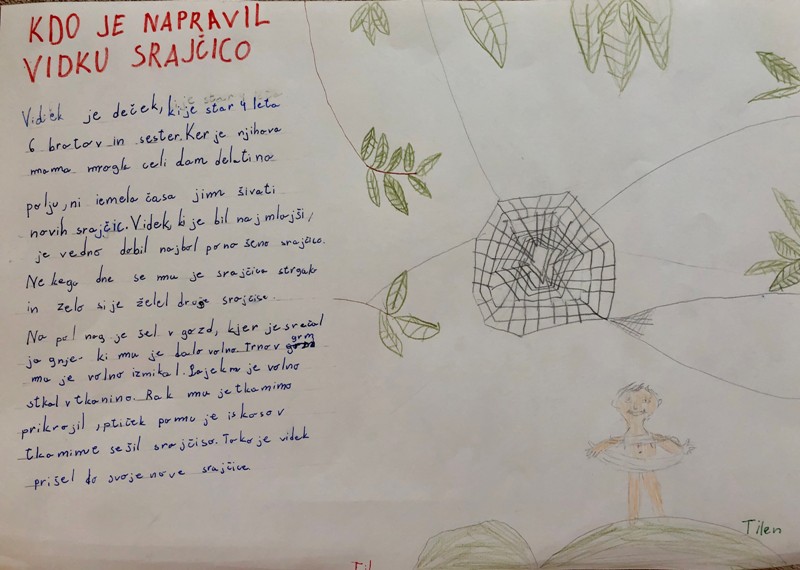 KDO JE NAPRAVIL
VIDKU SRAJČICO
Videk je deček, ki je star 4 leta
6 bratov in sester. Ker je njihova
mama mrogla celi dam delati na
polju, ni iemela časa jim šivati
novih srajčic. Videk, ki je bil najmlajši,
je vedno dobil najbol ponošeno srajčico.
Nekega dne se mu je srajčica strgala
in zelo si je želel druge srajčise.
Na pol nag je šel v gozd, kjer je srečal
jagnje- ki mu je dalo volno. Trnov grm
mu je volno izmikal. Pajek m je volno
stkal v tkanino. Rak mu je tkamimo
prikrojil, ptiček pa mu je iz kosov
tkamime sešil srajčiso. Tako je videk
prišel do svoje nove srajčice
Tilen
Til